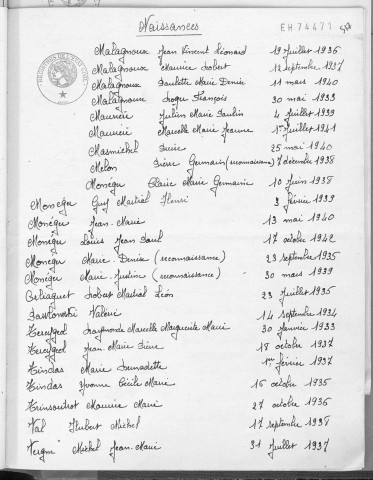 Naissances
EH 74477
Malagnoux Jean Vincent Léonard 19 Juillet 1936
Malagnoux Maurice Robert 12 septembre 1937
Malagnoux Paulette Marie Denise 11 mars 1940
Malagnoux Roger François 30 mai 1933
Maurière Julien Marie Paulin 4 Juillet 1939
Maurière Marcelle Marie Jeanne 1er Juillet 1941
Masmichel Pierre 25 mai 1940
Melon Pierre Germain (reconnaissance) 7 décembre 1938
Monégu Claire Marie Germaine 10 Juin 1938
Monégu Guy Martial Henri 3 février 1939
Monégu Jean-Marie 13 mai 1940
Monégu Louis Jean Paul 17 octobre 1942
Monégu Marie-Denise (reconnaissance) 23 septembre 1935
Monégu Marie-Justine (reconnaissance) 30 mars 1939
Robert Martial Léon 23 Juillet 1935
Valérie 14 septembre 1934
Terreygeol Raymonde Marcelle Marguerite Marie 30 Janvier 1933
Terreygeol Jean-Marie Pierre 18 octobre 1937
Tindas Marie Bernadette 1er février 1937
Tindas Yvonne Cécile Marie 16 octobre 1935
Trinsoutrot Maurice Marie 27 octobre 1936
Val Hubert Michel 17 septembre 1938
Michel Jean-Marie 31 Juillet 1937